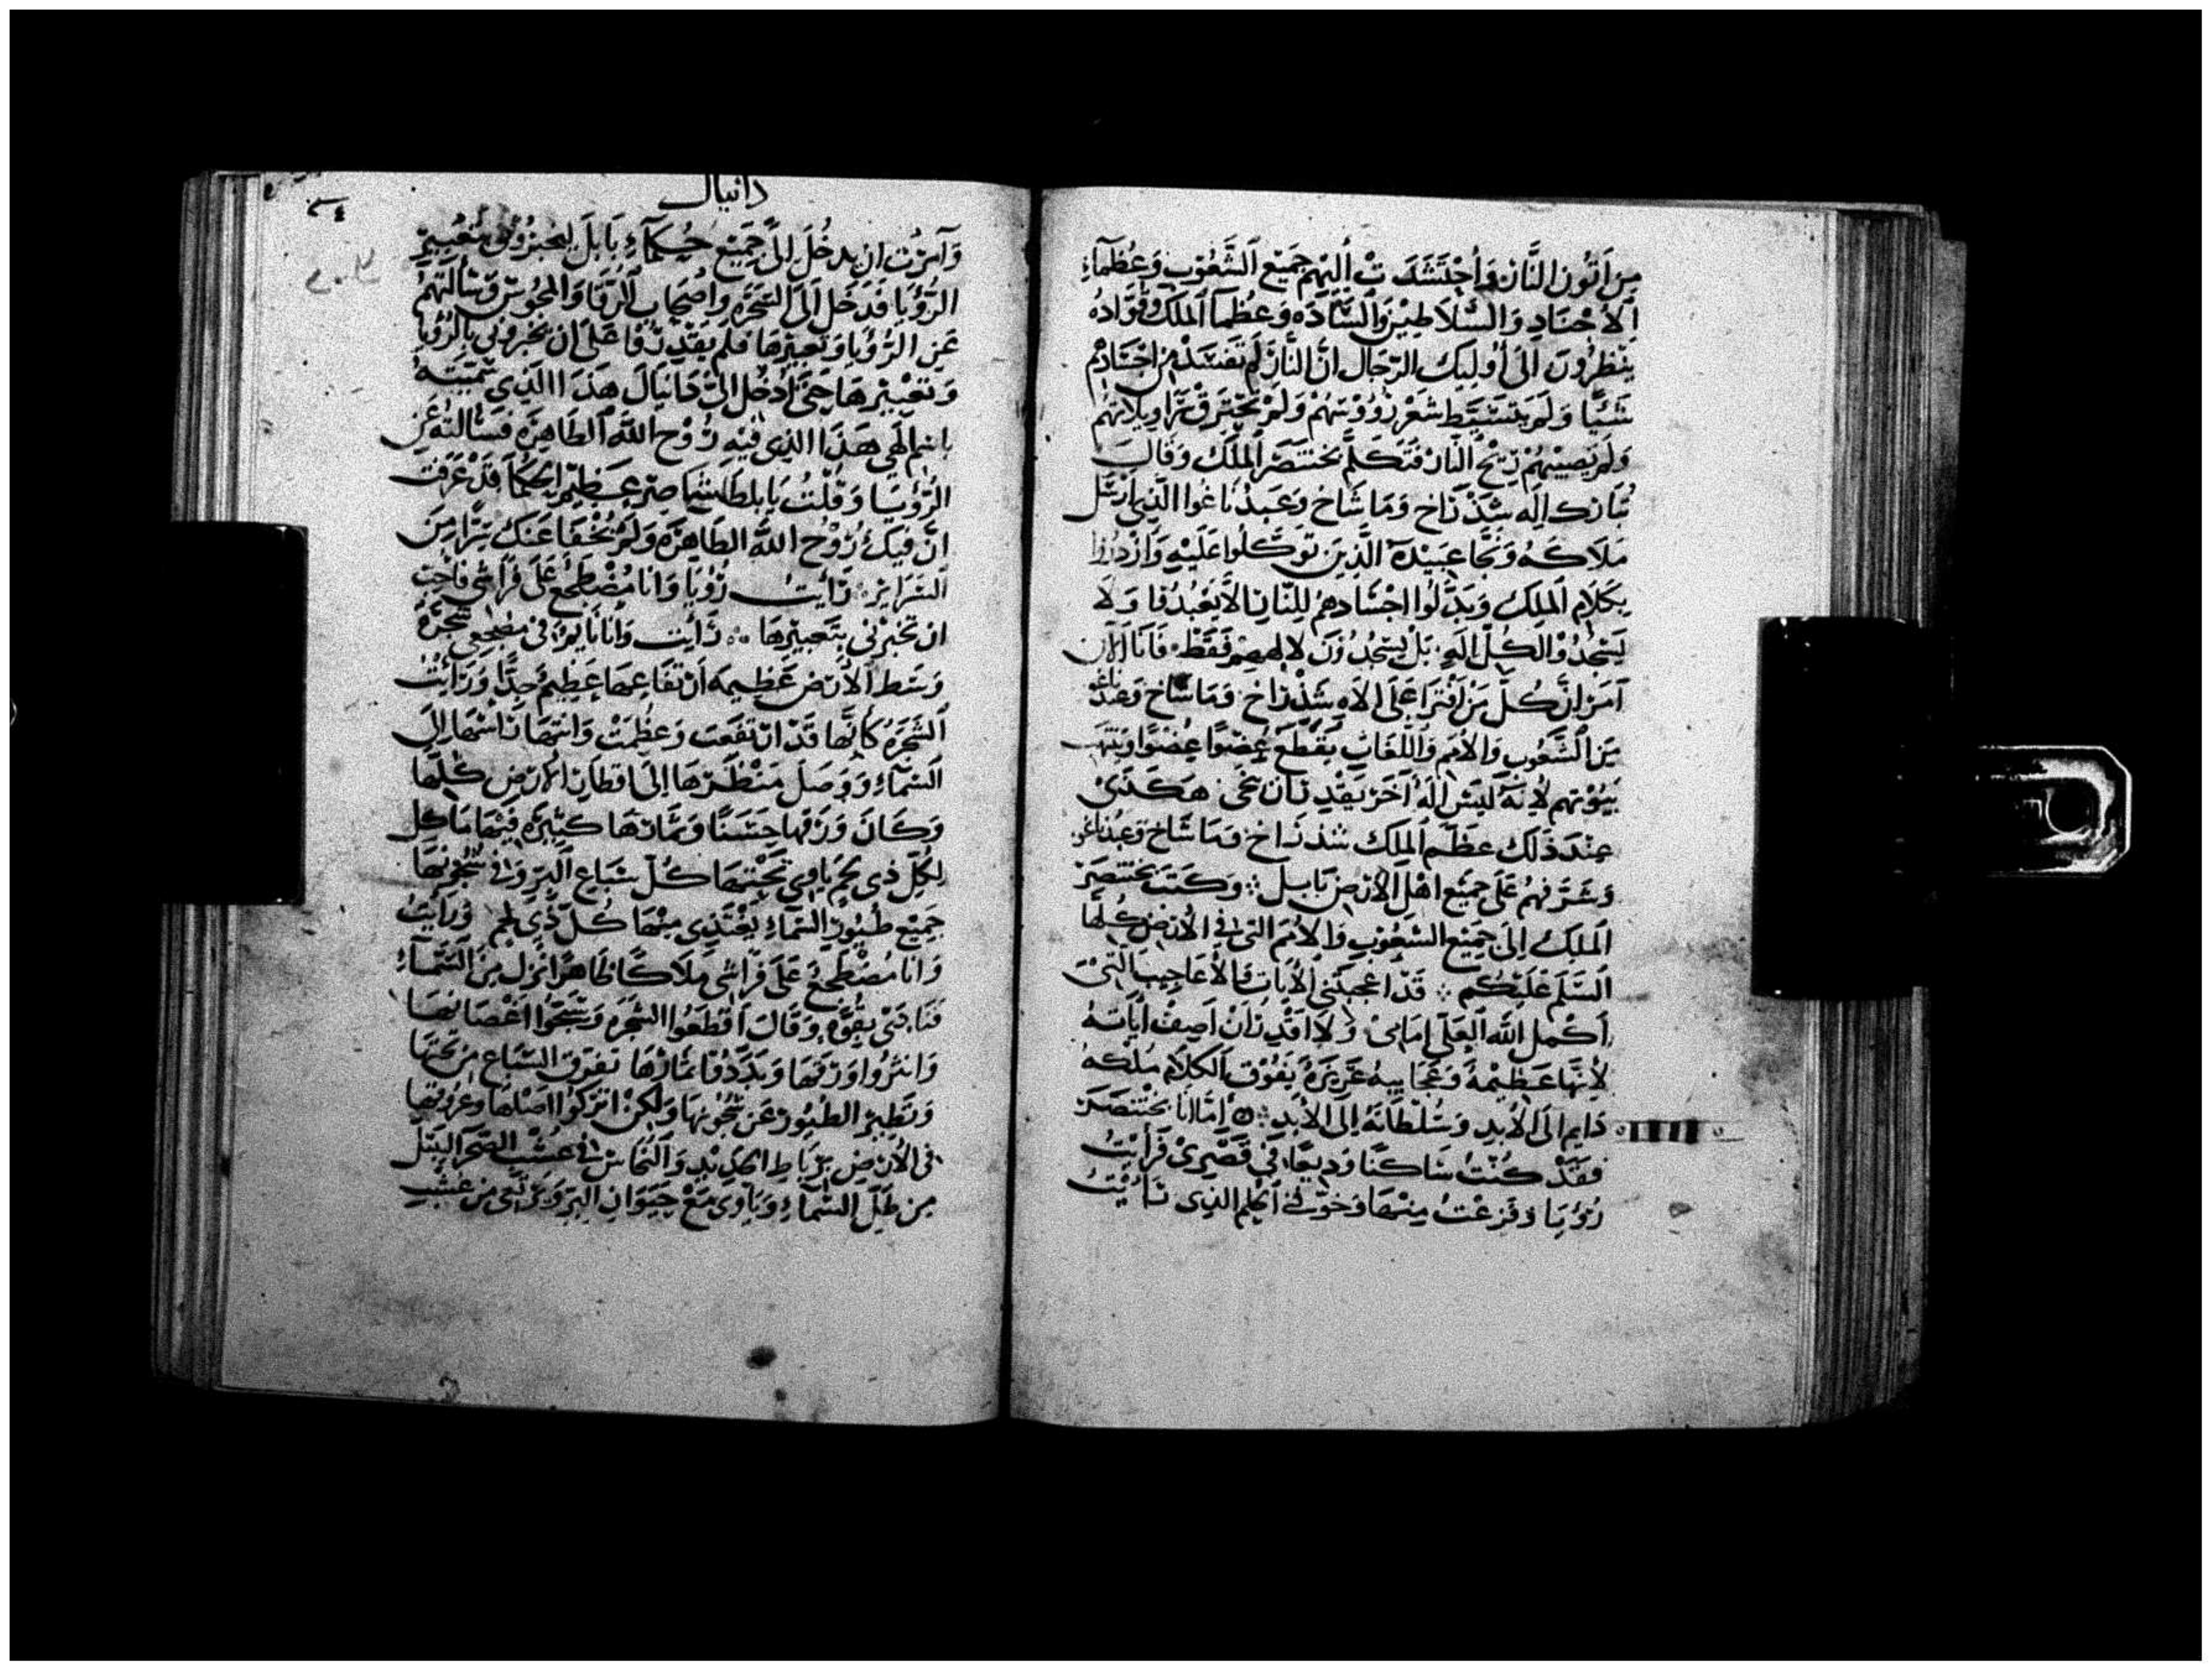 من اتون النار واجتشدت اليهم جميع الشعوب وعظماء
الاجناد والسلاطين والساده وعظما الملك وقواده
ينظرون الى اوليك الرجال ان النار لم تفسد من اجسادهم
شيا ولم يتشيط شعر رووسهم ولم يحترق سراويلاتهم
ولم يصيبهم ريح النار فتكلم بختنصر الملك وقال
تبارك اله شذراخ وماشاخ وعبدناغوا الذي ارسل
ملاكه ونجا عبيده الذين توكلوا عليه وازدروا
بكلام الملك وبدلوا اجسادهم للنار لالا يعبدوا ولا
يسجدوا لكل اله بل يسجدون لالههم فقط فانا الان
آمر ان كل من افترا على الاه شذراخ وماشاخ وعبدناغو
من الشعوب والامم واللغات يقطع عضوا عضوا وينتهب
بيوتهم لانه ليس اله آخر يقدر ان ينجى هكذى
عند ذلك عظم الملك شذراخ وماشاخ وعبدناغو
وشرفهم على جميع اهل الارض بابل وكتب بختنصر
الملك الى جميع الشعوب والامم التى فى الارض كلها
السلم عليكم قد اعجبتنى الايات والاعاجيب التى
اكمل الله العلى امامى ولا اقدر ان اصف اياته
لانها عظيمة وعجايبه عزيزة يفوق الكلام ملكه
دايم الى الابد وسلطانه الى الابد امّا انا بختنصر
فقد كنت ساكنا وديعا فى قصرى فرايت
رؤيا وفزعت منها وخوفنى الحلم الذى رايت
دانيال
وآمرت ان يدخل الى جميع حكماء بابل ليخبرونى بتعبير
الرؤيا فدخل الى السحره واصحاب الرقا والمجوس وسالتهم
عن الرؤيا وتعبيرها فلم يقدروا على ان يخبرونى بالرؤيا
وتعبيرها حتى ادخل الى دانيال هذا الذى سميته
باسم الهى هذا الذى فيه روح الله الطاهره فسالته عن
الرؤيا وقلت يا بلطاشاصر عظيم الحكما قد عرفت
ان فيك روح الله الطاهره ولم يخفا عنك سرا من
السراير رايت رؤيا وانا مضطجع على فراشى فاحب
ان تخبرنى بتعبيرها رايت وانا نايم فى مضجعى شجرة
وسط الارض عظيمه ارتفاعها عظيم جدا ورايت
الشجره كانها قد ارتفعت وعظمت وانتها راسها الى
السماء ووصل منظرها الى اقطار الارض كلها
وكان ورقها حسنا وثمارها كثيره فيها ماكل
لكل ذى لحم ياوى تحتها كل سباع البر وفى شجونها
جميع طيور السماء يغتذى منها كل ذى لحم ورايت
وانا مضطجع على فراشى ملاكا طاهرا نزل من السماء
فنادى بقوه وقال اقطعوا الشجره وسحجوا اغصانها
وانثروا ورقها وبددوا ثمارها تفرق السباع من تحتها
وتطير الطيور عن شجونها ولكن اتركوا اصلها وعروقها
فى الارض برباط الحديد والنحاس فى عشب الصحرا ليبتل
من طل السماء وياوى مع حيوان البر ويرتعى من عشب